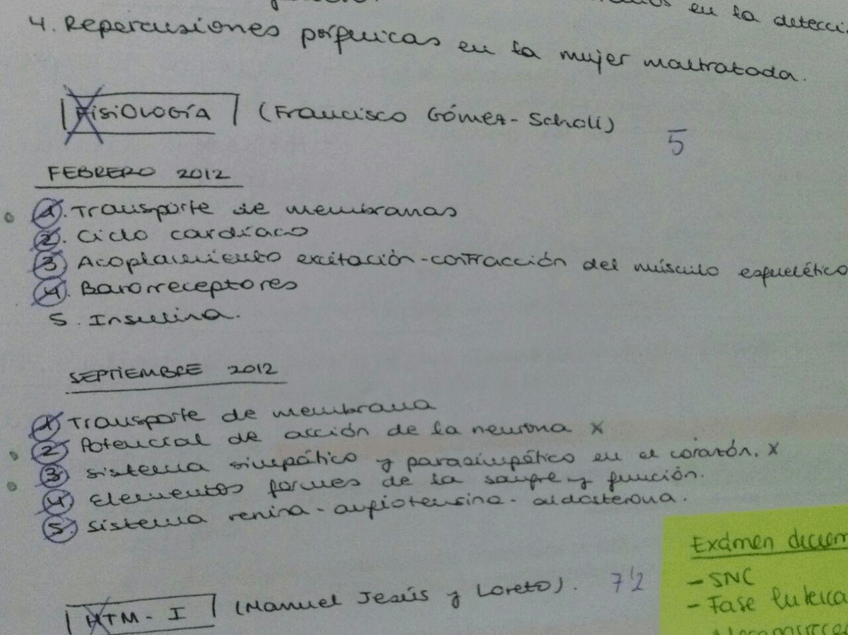 en la detecci
4. Repercusiones psíquicas en la mujer maltratada.
FISIOLOGÍA (Francisco Gómez-Scholl) 5
FEBRERO 2012
1. Transporte de membranas
2. Ciclo cardíaco
3. Acoplamiento excitación-contracción del músculo esquelético
4. Barorreceptores
5. Insulina.
SEPTIEMBRE 2012
1. Transporte de membrana
2. Potencial de acción de la neurona x
3. sistema simpático y parasimpático en el corazón. x
4. Elementos formes de la sangre y función.
5. sistema renina-angiotensina-aldosterona.
HTM-I (Manuel Jesús y Loreto). 7'2
Exámen diciem
- SNC
- Fase lútea